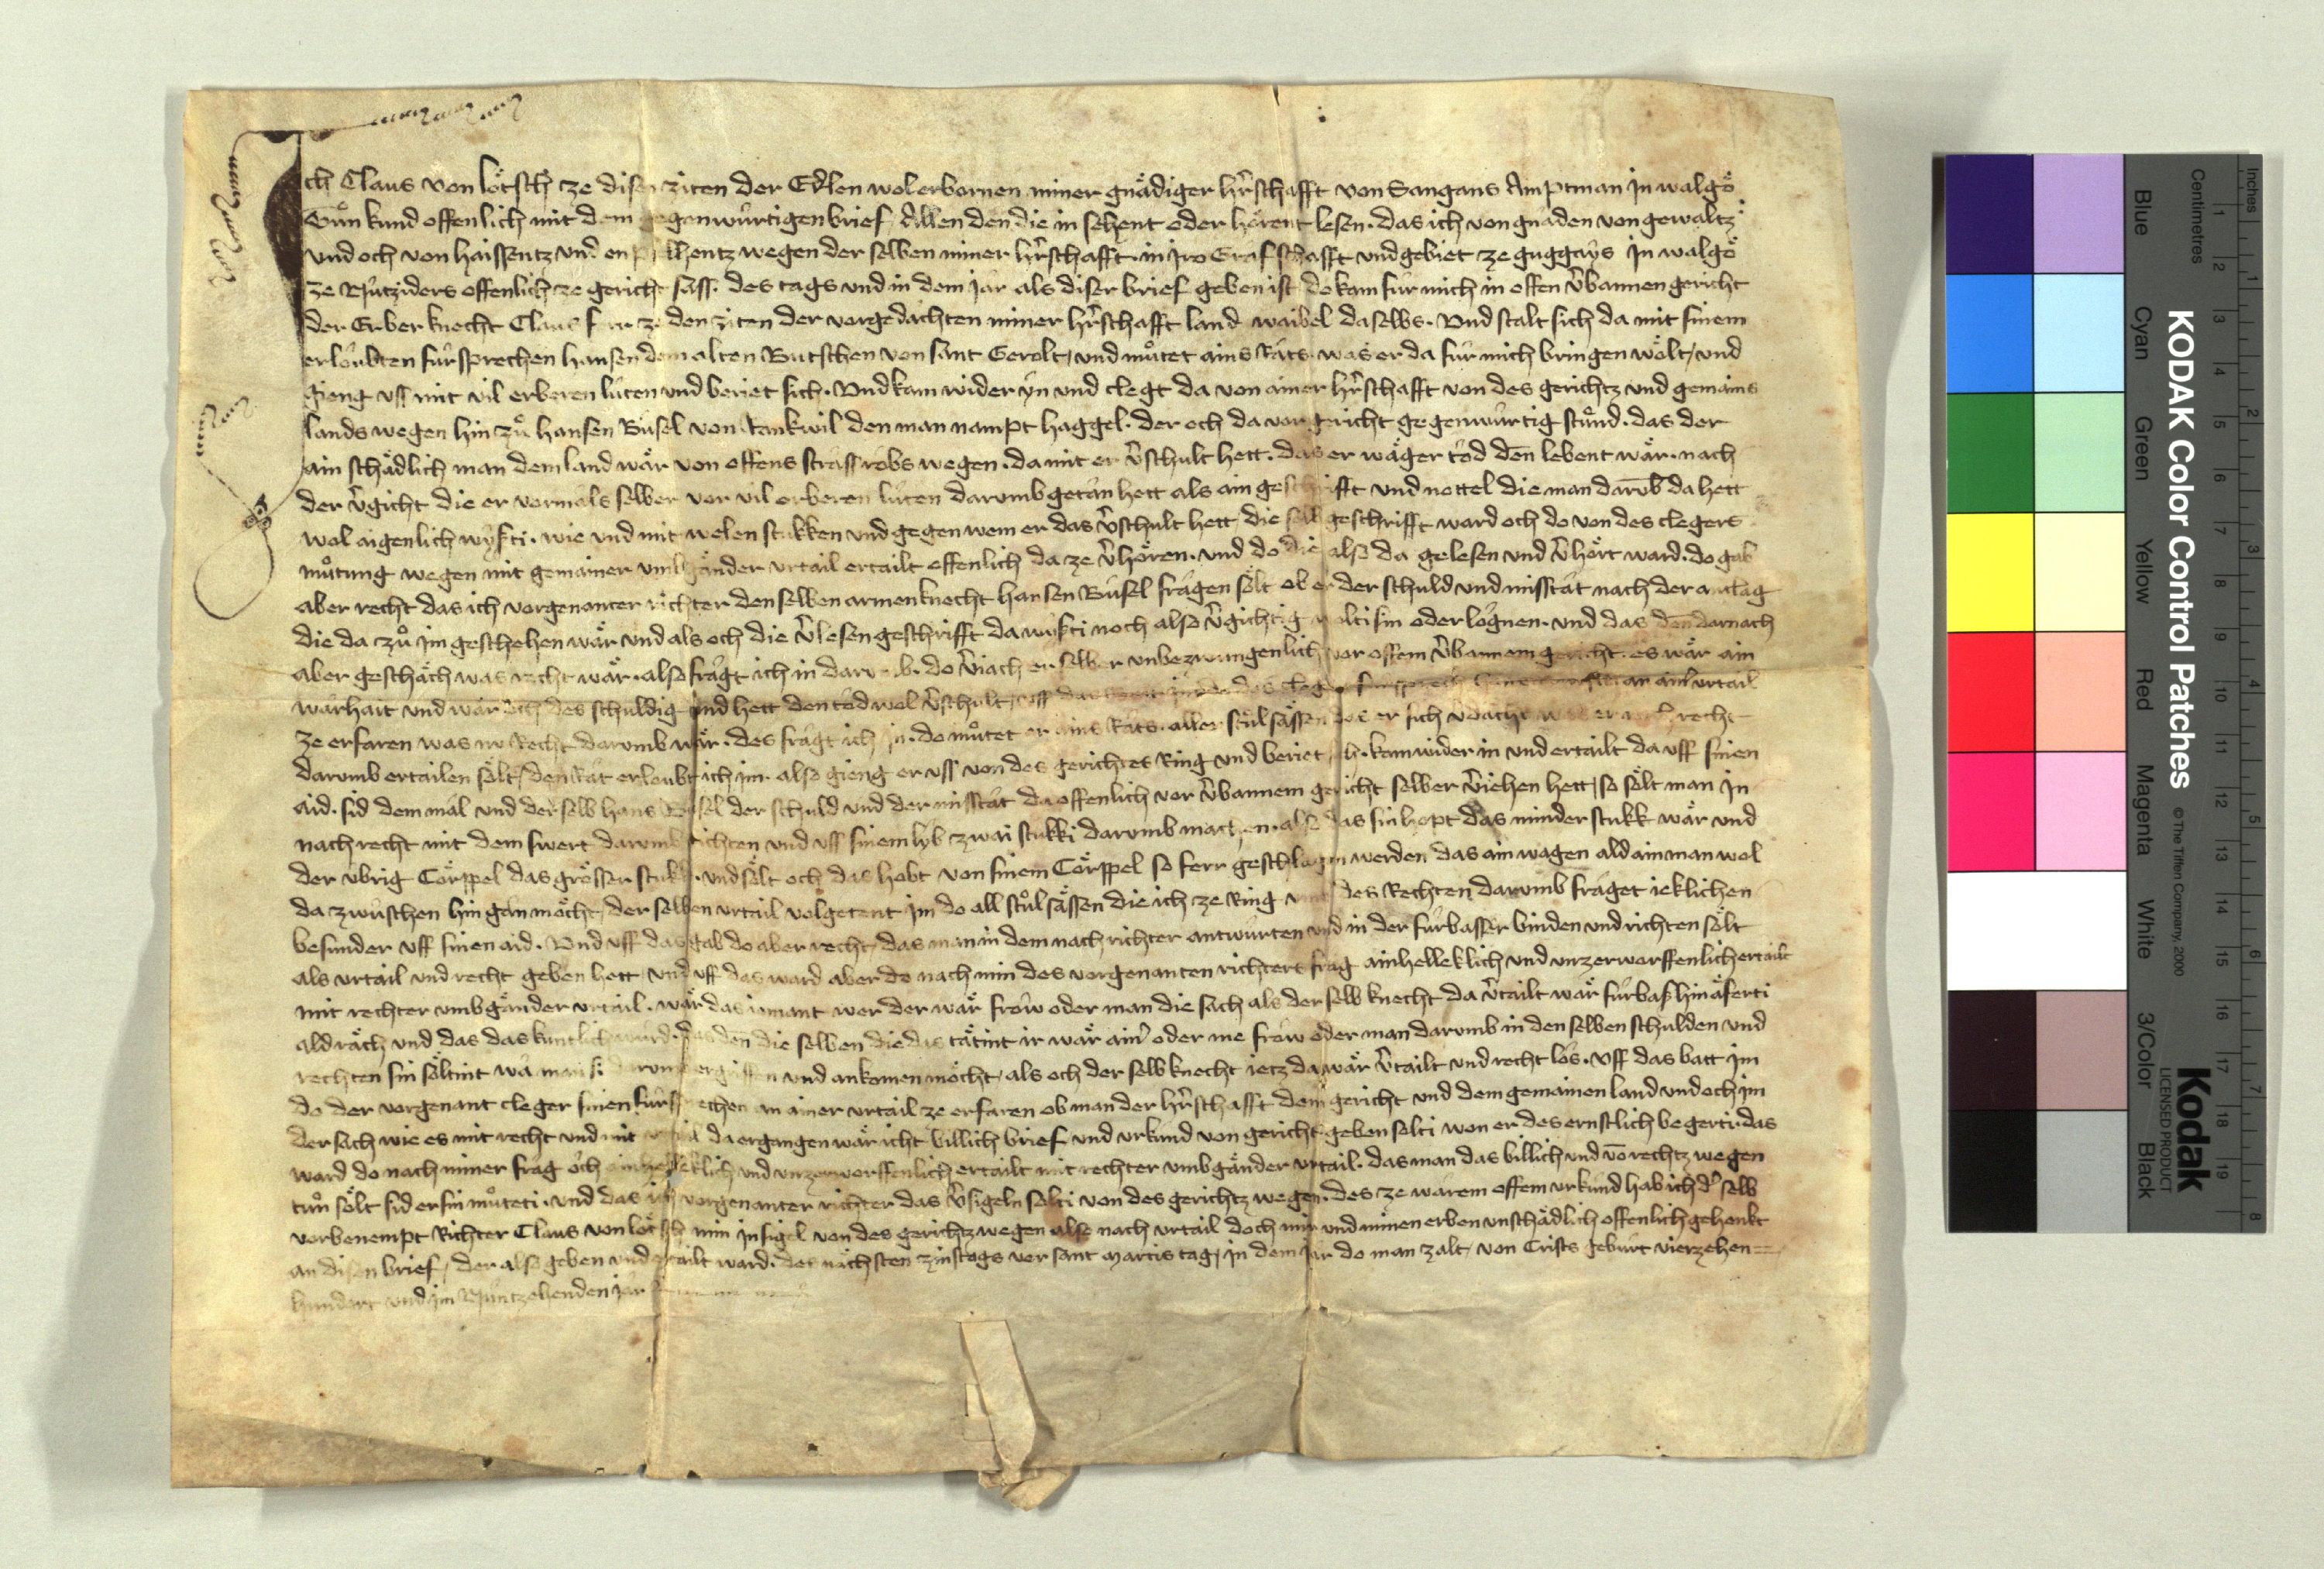 Ich Claus von Lötsch ze disen ziten der Edlen wolerbornen miner gnädiger hr̃schafft von Sangans Amptman jn walgöͮ
Tuͦn kund offenlich mit dem gegenwürtigen brief Allen den die in sehent oder hörent lesen. das ich von gnaden von gewaltz
und och von haissentz und enpfelhentz wegen der selben miner hr̃schafft in jro Grafschafft und gebiet ze guggays jn walgöͮ
ze Nützuders offenlich ze gericht sass. des tags und in dem jar als diser brief geben ist do kam für mich in offen v̄bannen gericht
der Erber knecht Claus ze den ziten der vorgedachten miner hr̃schafft land waibel daselbs. Und stalt sich da mit sinem
erloubten fürsprechen hansen dem alten Butschen von sant Gerolt, und muͦtet ains Rats. was er da für mich bringen wölt, und
gieng uss mit vil erberen lüten und beriet sich. Und kam wider yn und clegt da von ainer hr̃schafft von des gerichtz und gemains
lands wegen hin zuͦ hansen Büsel von Rankwil den man nampt haggel. der och da vor gericht gegenwürtig stuͦnd. das der
ain schädlich man dem land wär von offens strassrobs wegen. da mit er v̄schult hett. das er wäger tod den̄ lebent wär. nach
der v̄gicht die er vormals selber vor vil erberen lüten darumb getan hett als ain geschrifft und nottel die man darub̄ da hett
wol aigenlich wysti. wie und mit welen stukken und gegen wem er das v̄schult hett die selb geschrifft ward och do von des clegers
muͦtung wegen mit gemainer umbgänder urtail ertailt offenlich da ze v̄hören. und do die also da gelesen und v̄hört ward. do gab
aber recht das ich vorgenanter richter den selben armen knecht hansen Büsel fragen sölt ob er der schuld und misstat nach der anclag
die da zuͦ jm geschehen wär und als och die v̄lesen geschrifft da wysti noch also v̄gichtig wolti sin oder lögnen. und das den̄ darnach
aber geschäch was recht wär. also fragt ich in darumb. do v̄iach er selber unbezwungenlich vor offem v̄bannem gericht. es wär ain
warhait und wär och des schuldig und hett den tod wol v̄schult, uff das des clegers fürsprech an ain̄ urtail
ze erfaren was nu Recht darumb wär. des fragt ich jn. do muͦtet er ains Rats. aller stuͦlsässen das er sich bedächt was er recht
darumb ertailen sölt, den Rat erloubt ich jm. also gieng er uss von des gerichtes Ring und beriet sich. kam wider in und ertailt da uff sinen
aid. sid dem mal und der selb hans Büsel der schuld und der misstat da offenlich vor v̄bannem gericht selber v̄iehen hett, so sölt man jn
nach recht mit dem swert darumb richten und uss sinem lyb zwai stukki darumb machen. also das sin hopt das minder stukk wär und
der übrig Cörppel das grösser stukk. und sölt och das hobt von sinem Cörppel so ferr geschlagen werden das ain wagen ald ain man wol
da zwüschen hin gan möcht, der selben urtail volgetent jm do all stuͦlsässen die ich ze Ring umb des Rechten darumb fraget ieklichen
besunder uff sinen aid. Und uff das gab do aber recht, das man in dem nachrichter antwürten und in der fürbasser binden und richten sölt
als urtail und recht geben hett und uff das ward aber do nach min des vorgenanten richters frag ainhelleklich und unzerworffenlich ertailt
mit rechter umbgänder urtail. wär das iemant wer der wär frow oder man die sach als der selb knecht da v̄tailt wär fürbass hin äferti
ald räch und das das kuntlich wurd. das den̄ die selben die das tätint ir wär ain̄ oder me frow oder man darumb in den selben schulden und
rechten sin söltint wa man si darumb ergriffen und ankomen möcht, als och der selb knecht ietz da wär v̄tailt und recht los. Uff das batt jm
do der vorgenant cleger sinen fürsprechen an ainer urtail ze erfaren ob man der hr̃schafft dem gericht und dem gemainen land und och jm
der sach wie es mit recht und mit urtail da ergangen wär icht billich brief und urkund von gericht geben solti won er des ernstlich begerti. das
ward do nach miner frag och ainhelleklich und unzerworffenlich ertailt mit rechter umbgänder urtail. das man das billich und vo̅ rechtz wegen
tuͦn sölt sid er sin muͦteti. und das ich vorgenanter richter das v̄sigeln solti von des gerichtz wegen. des ze warem offem urkund hab ich d̕ selb
vorbenempt Richter Claus von Lötsch min jnsigel von des gerichtz wegen also nach urtail doch mir und minen erben unschädlich offenlich gehenkt
an disen brief, der also geben und ertailt ward. des nächsten zinstags vor sant martis tag, in dem jar do man zalt, von Crists geburt vierzehen
hundert und jm Nüntzehenden jar
KODAK Color Control Patches
© The Tiffen Company, 2000
Kodak
LICENSED PRODUCT
Blue
Cyan
Green
Yellow
Red
Magenta
White
3/Color
Black
Centimetres
Inches
1
2
3
4
5
6
7
8
9
10
11
12
13
14
15
16
17
18
19
1
2
3
4
5
6
7
8